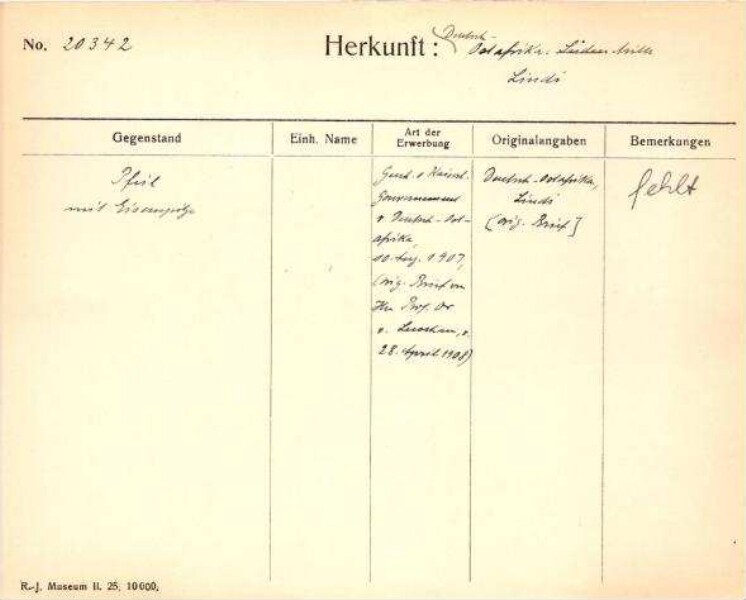 No. 20342
Herkunft: Deutsch-
Ostafrika.
Lindi
Gegenstand
Einh. Name
Art der
Erwerbung
Originalangaben
Bemerkungen
Pfeil
mit Eisenspitze
Gesch. v. Kaiserl.
Gouvernement
v. Deutsch-Ost-
afrika,
1907,
(orig. Brief von
Hn Prof. Dr
v. Luschan, v.
28. April 1908)
Deutsch-Ostafrika,
Lindi
[orig. Brief]
fehlt
R.-J. Museum II. 25. 10000.